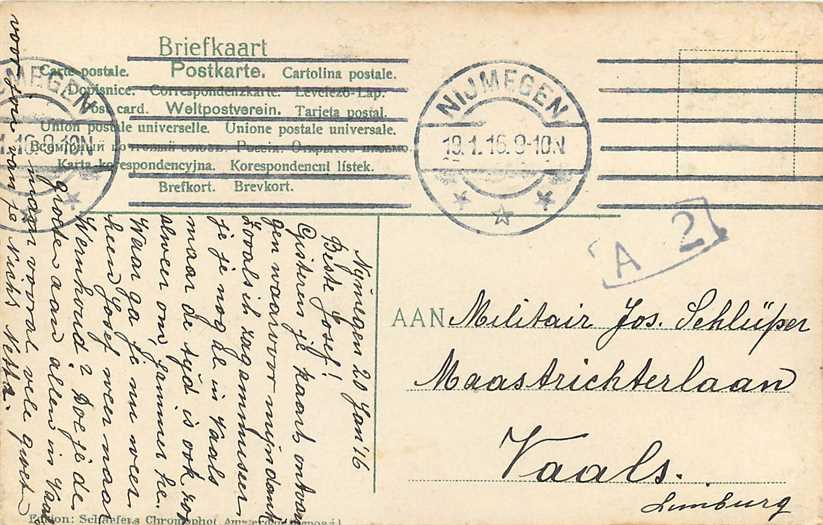 Briefkaart
Carte postale. Postkarte. Cartolina postale.
Dopisnice. Correspondenzkarte. Levelező-Lap.
Post card. Weltpostverein. Tarjeta postal.
Union postale universelle. Unione postale universale.
Всемірный почтовый союзъ. Россія. Открытое письмо.
Karta korespondencyjna. Korespondencní lístek.
Brefkort. Brevkort.
MEGEN
1.16.9-10N
NIJMEGEN
19.1.16.9-10N
A 2
Nijmegen 20 Jan '16
Beste Josef!
Gisteren je kaart ontvan
gen waarvoor mijn dank
Zooals ik zag
je je nog al in Vaals
maar de tijd is ook zoo
alweer om, jammer he.
Waar ga je nu weer
heen Josef weer naar
? Doe je de
groeten aan allen in Vaals
maar vooral vele groet
voor jou van je Nicht Netta.
AAN Militair Jos. Schlüper
Maastrichterlaan
Vaals.
Limburg
Edition: Schaefers Chromophot Amsterdam